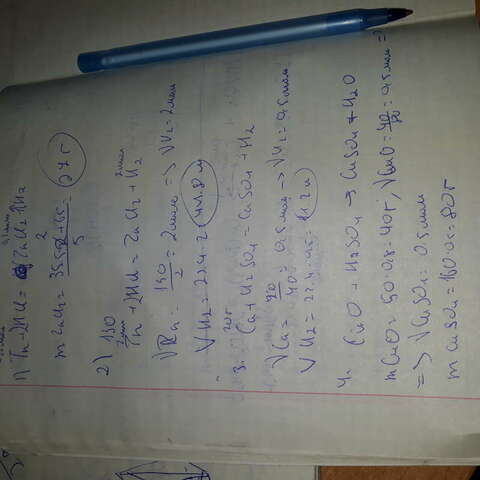 0,1 моль
1) Zn+2HCl = ZnCl2 ↑H2
2
m ZnCl2 = = 27г
5
2) 130
2 моль 2 моль
Zn +2HCl = ZnCl2 + H2
= 130/2 = 2 моль => νH2 = 2 моль
V H2 = 22.4 · 2 44.8 л
20г
3. Ca + H2SO4 = CaSO4 + H2
νCa = 20/40 = 0.5 моль -> νH2 = 0.5 моль
V H2 = 22.4 · 0.5 = 11.2 л
4. CuO + H2SO4 -> CuSO4 + H2O
m CuO = 50 · 0.8 = 40г; νCuO = = 0.5 моль =>
=> νCuSO4 = 0.5 моль
m CuSO4 = 160 · 0.5 = 80г